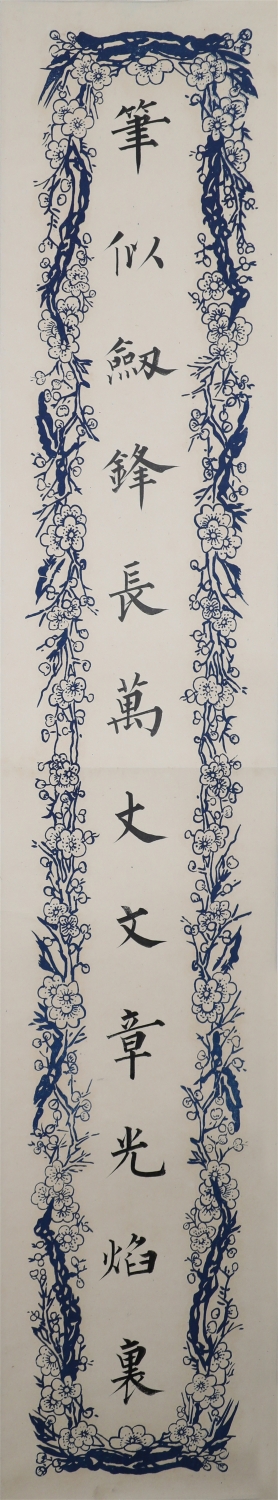 筆似劔鋒長萬丈文章光焰裏